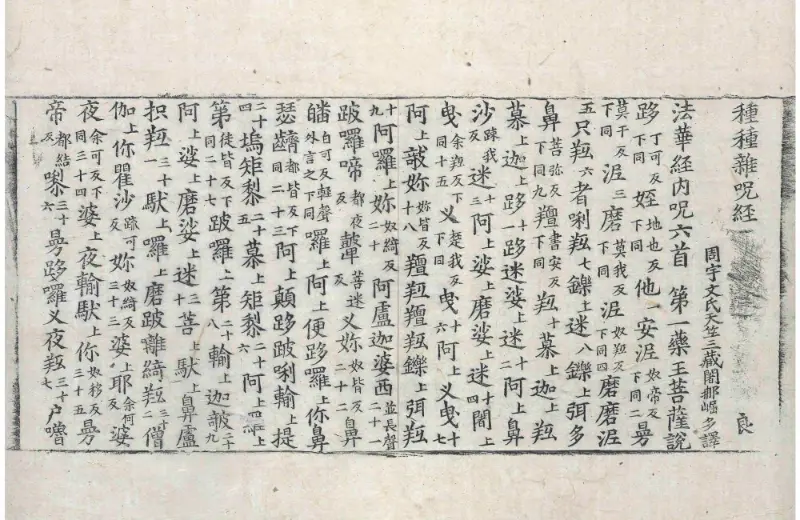 種種雜呪經 良
周宇文氏天竺三藏闍那崛多譯
法華經内呪六首 第一藥王菩薩說
跢丁可反下同姪地也反下同他一安涅奴帝反下同二曼
莫干反下同涅三磨莫我反下同涅奴羝反下同四磨磨涅
五只羝六者唎羝七鑠上迷八鑠上弭多
鼻菩弥反下同九羶書安反下同羝十慕上迦上羝
慕上迦上跢一跢迷娑上迷二十阿上鼻
沙踈我反迷三十阿上娑上磨娑上迷四十闍上
曳余羝反下同十五叉楚我反下同曳六十阿上叉曳十七
阿上㲉妳妳皆反十八羶羝羶羝鑠上弭羝
十九阿囉上妳奴綺反二十阿盧迦婆西並長聲二十一
跛囉啼都夜反鼙菩迷反叉妳奴皆反二十二鼻
皤白可反輕聲外言之下同囉上阿上便跢囉上你鼻
瑟䶩都皆反下同二十三阿上顛跢跛唎輸上提
二十四塢矩棃二十五慕上矩棃二十六阿上囉上
第徒皆反下同二十七跛囉上第二十八輸上迦㲉二十九
阿上娑上磨娑上迷三十菩上䭾上鼻盧
抧羝三十一䭾上囉上磨跛離綺羝三十二僧
伽上你瞿沙踈可反妳奴綺反三十三婆上耶余何反婆
夜余可反下同三十四婆上夜輸䭾上你奴移反三十五曼
帝都結反㗚三十六曼跢囉叉夜羝三十七户嚕